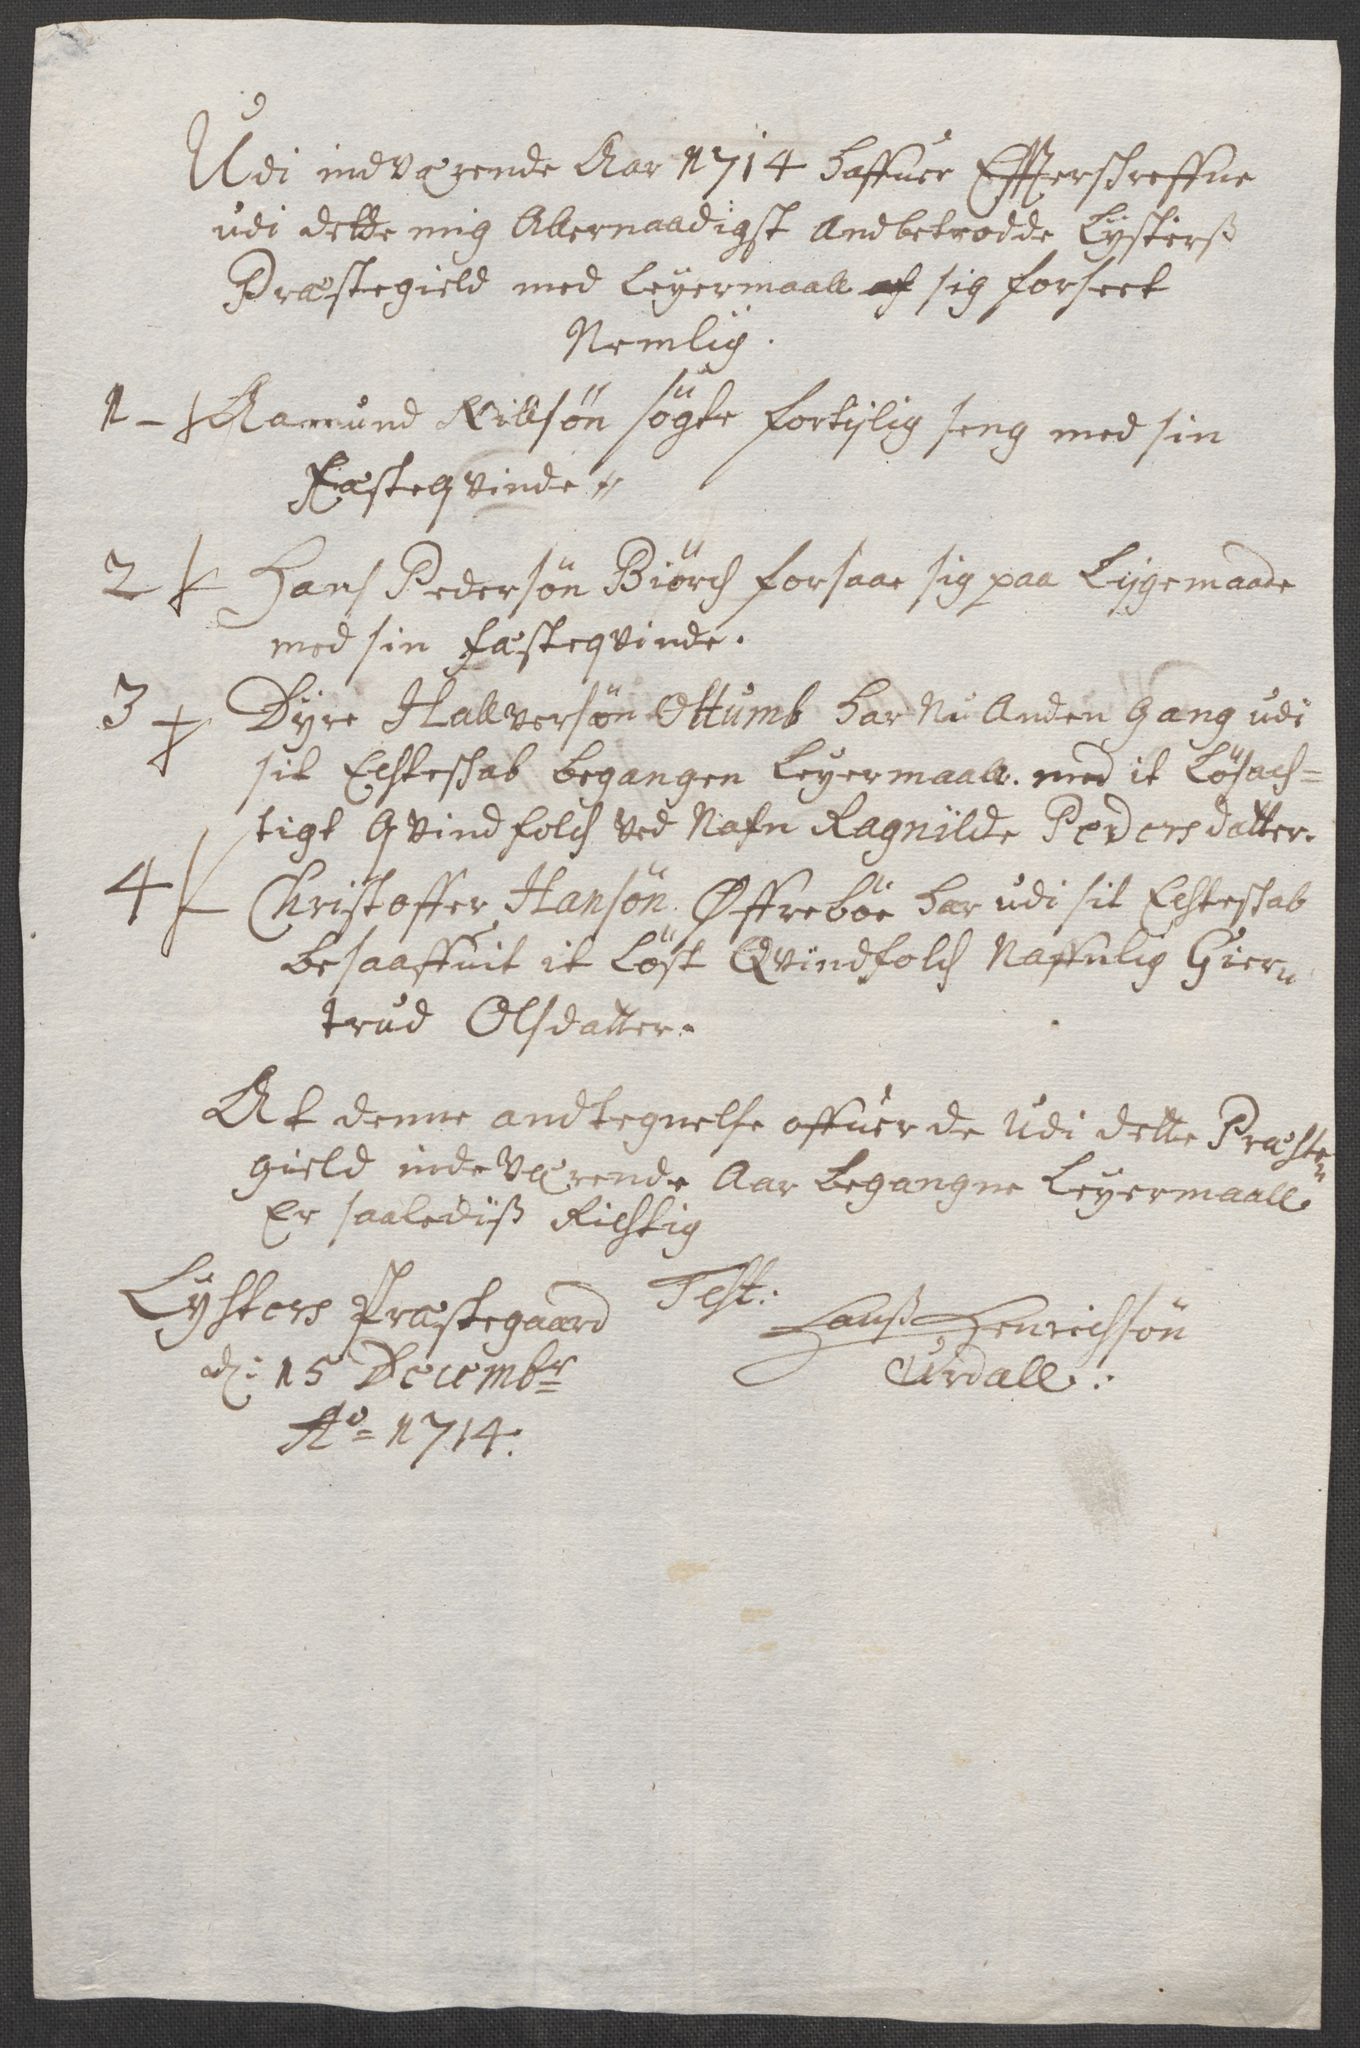 Udi indværende Aar 1714 haffuer Effterschreffne
udi dette mig Allernaadigst Andbetrodde Lysterß
Præstegield med Leyermaall sig forseet
Nemlig.
1 Aamund Nillsøn søgte fortijlig seng med sin
Fæsteqvinde
2 Hans Pedersøn Biörch forsaae sig paa Lijgemaade
med sin fæsteqvinde.
3 Dyre Hallversøn Ottumb har Nu Anden Gang udi
sit Echteschab begangen Leyermaall. med it Løsach=
tigt Qvindfolch ved Nafn Ragnilde Pedersdatter.
4 Christoffer Hansøn Øffrebøe har udi sit Echteschab
besaaffuit it Løst Qvindfolch Naffnlig Gier
trud Olsdatter.
At denne andtegnelse offuer de Udi dette Præste
gield indeværende Aar begangne Leyermaall
Er saalediß Richtig
Lysters Præstegaard Test:
d: 15 Decembr Hanß Henrichsøn
Ao 1714. Urdall.